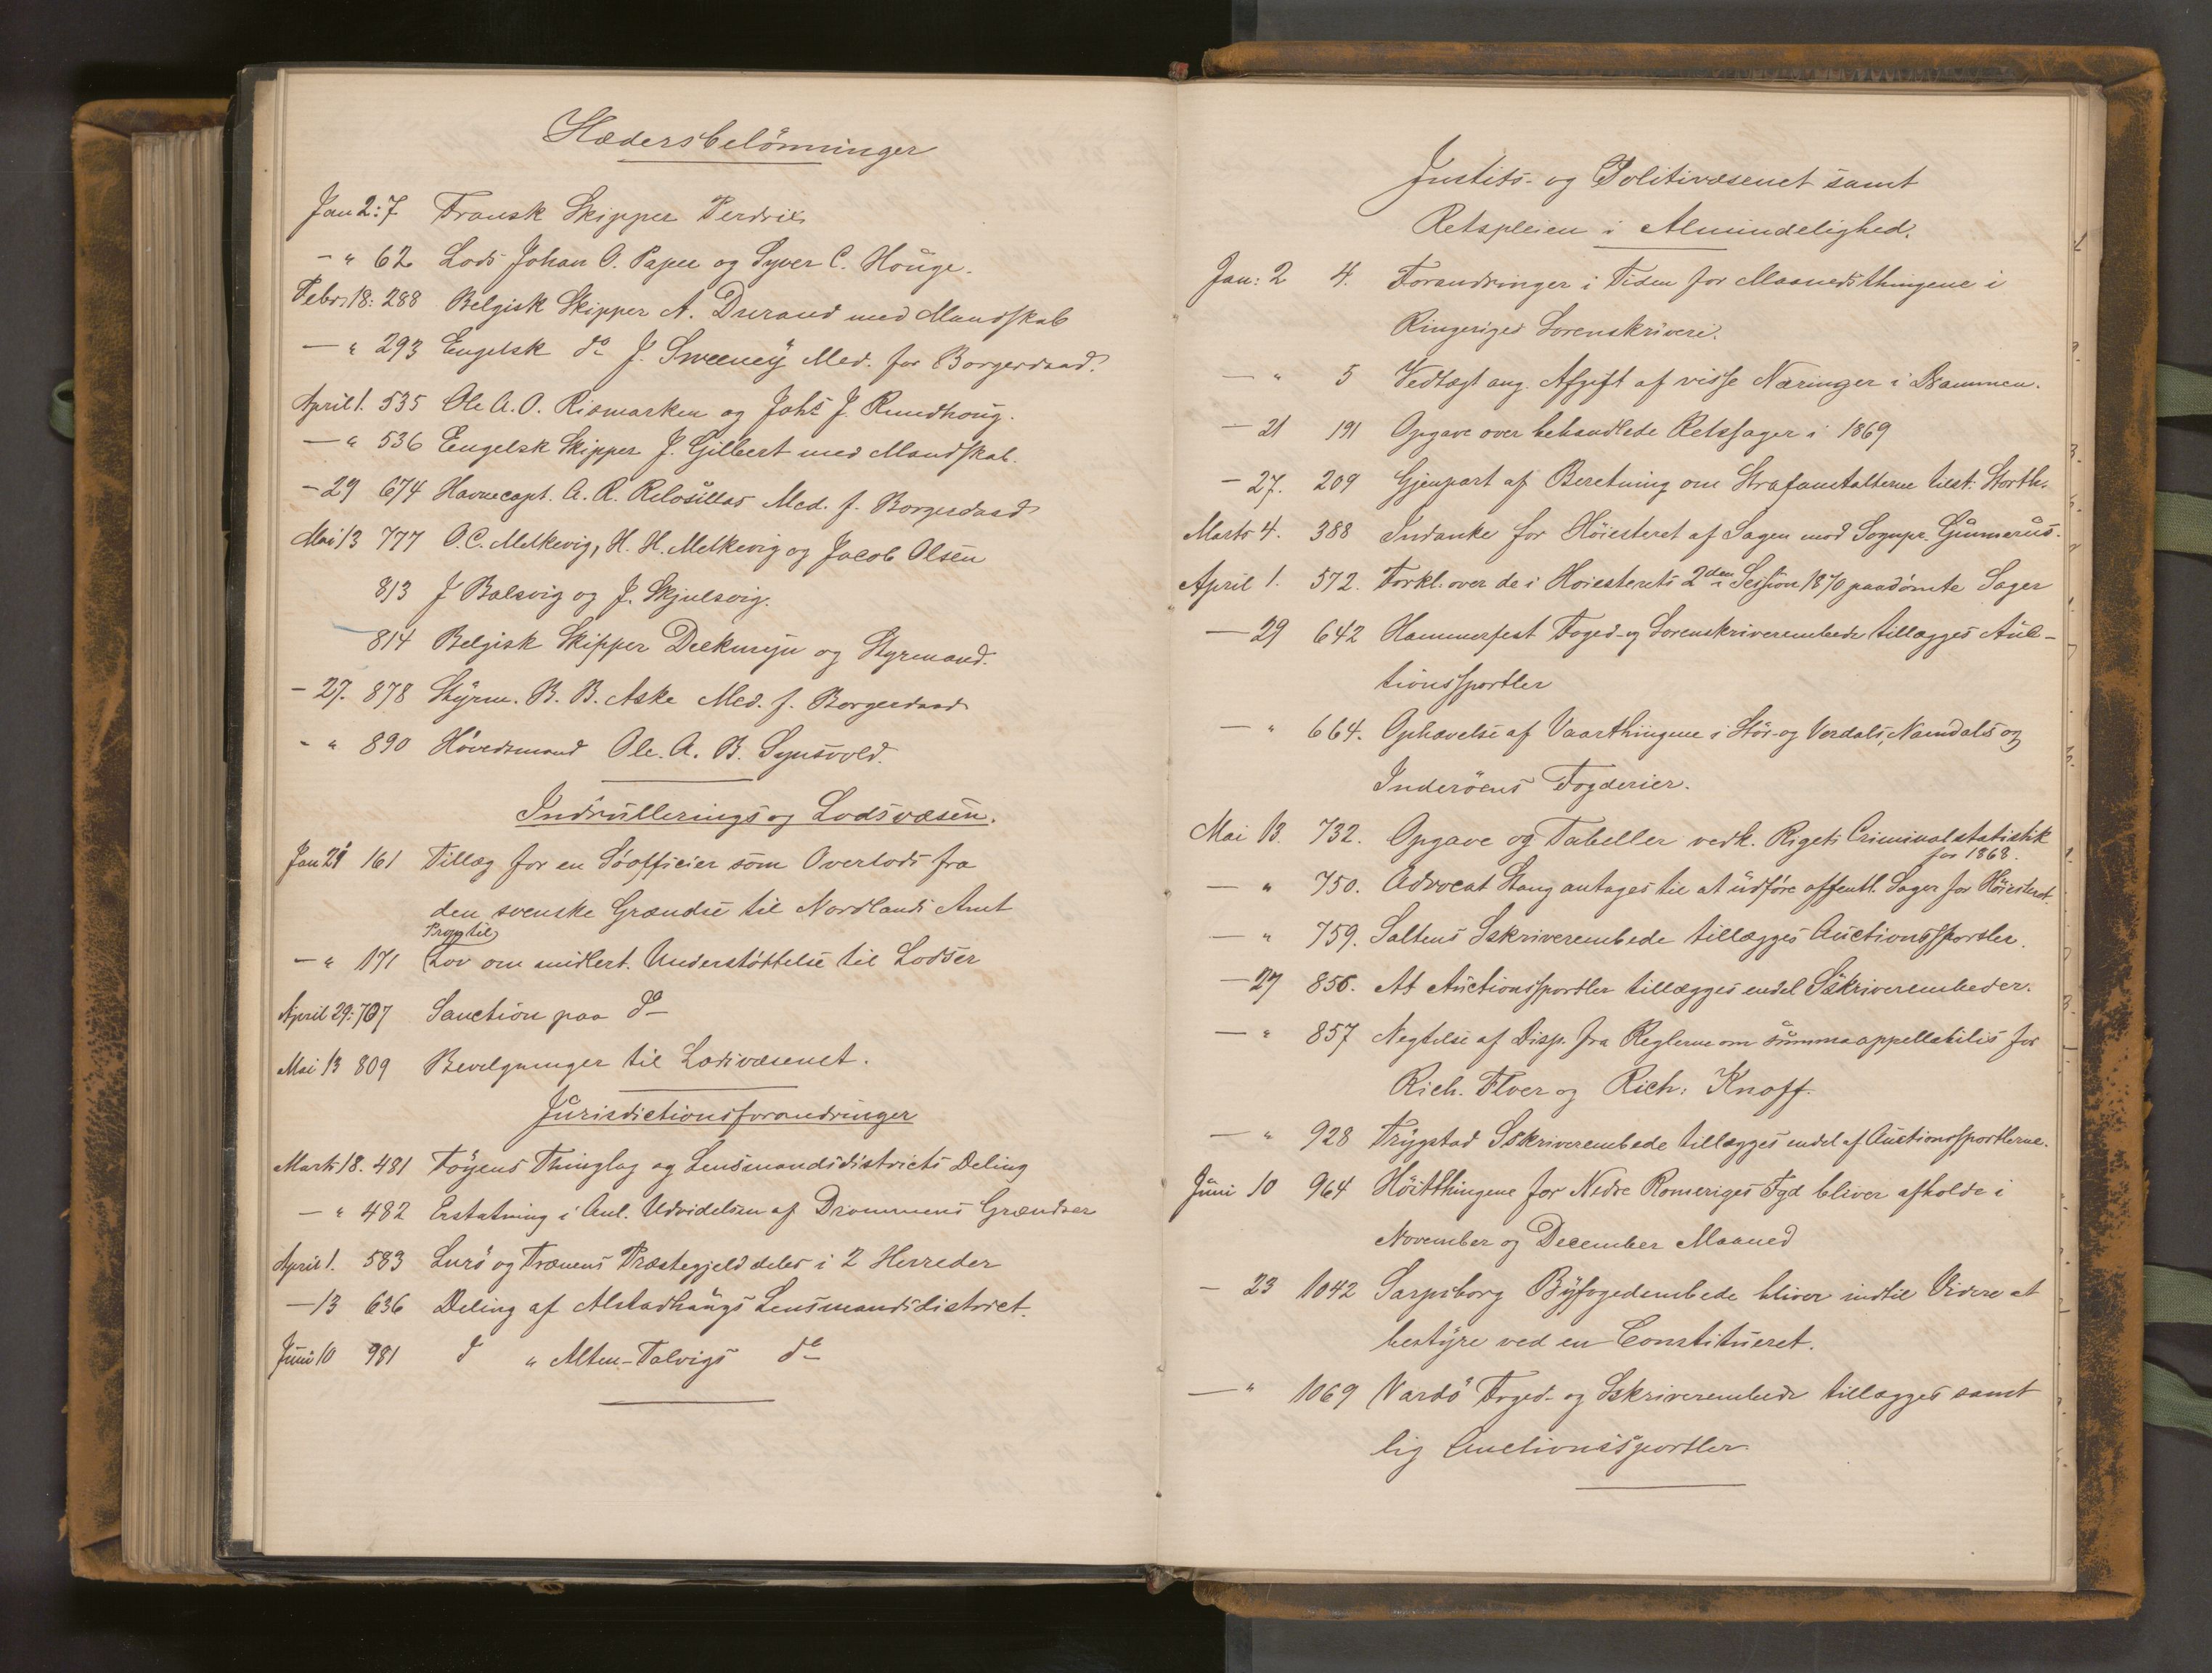 Hædersbelønninger
Jan 2: 7 Fransk Skipper Perdrix
- " 62 Lods Johan O. Papee og Syver C. Houge.
Febr. 18: 288 Belgisk Skipper A. Durand med Mandskab
- " 293 Engelsk do J. Sweeney Med. for Borgerdaad.
April 1. 535 Ole A. O. Rismarken og Johs J. Rundhoug.
- " 536 Engelsk Skipper J. Gilbert med Mandskab.
- 29 674 Havnecapt. A. R. Med. f. Borgerdaad
Mai 13 777 O. C. Melkevig, H. H. Melkevig og Jacob Olsen
813 J Balsvig og J. Skjulsvig.
814 Belgisk Skipper og Styrmand.
- 27. 878 Styrm. B. B. Aske Med. f. Borgerdaad
- " 890 Høvedsmand Ole. A. B. Synsvold.
Indrullerings og Lodsvæsen.
Jan 21 161 Tillæg for en Søofficier som Overlods fra
den svenske Grændse til Nordlands Amt
Prop til
- " 171 Lov om midlert. Understøttelse til Lodser
April 29: 707 Sanction paa do
Mai 13 809 Bevilgninger til Lodsvæsenet.
Jurisdictionsforandringer
Marts 18. 481 Føyens Thinglag og Lensmandsdistricts Deling
- " 482 Erstatning i Anl. Udvidelsen af Drammens Grændser
April 1. 583 Lurø og Trænens Præstegjeld deles i 2 Herreder
- 13 636 Deling af Alstadhaugs Lensmandsdistrict.
Juni 10 981 d " Alten-Talvigs do
Justits- og Politivæsenet samt
Retspleien i Almindelighed.
Jan: 2 4. Forandringer i Tiden for Maanedsthingene i
Ringeriges Sorenskriveri.
- " 5 Vedtægt ang. Afgift af visse Næringer i Drammen.
- 21 191 Opgave over behandlede Retssager i 1869
- 27. 209 Gjenpart af Beretning om Strafanstalterne tilst. Storth.
Marts 4. 388 Indanke for Høiesteret af Sagen mod Sognpr. Gunnerus.
April 1. 572. Forkl. over de i Høiesterets 2den Session 1870 paadømte Sager
- 29 642 Hammerfest Foged- og Sorenskriverembede tillægges Auc-
tionssportler
- " 664. Ophævelse af Vaarthingene i Stør- og Verdals, Namdals og
Inderøens Fogderier.
Mai 13. 732. Opgave og Tabeller vedk. Rigets Criminalstatistik
for 1868.
- " 750. Advocat Stang antages til at udføre offentl. Sager for Høiesteret.
- " 759. Saltens Sskriverembede tillægges Auctionssportler.
- 27 856. At Auctionssportler tillægges endel Sskriverembeder.
- " 857 Negtelse af Disp. fra Reglerne om summa appellabilis for
Rich. Floer og Rich: Knoff.
- " 928 Trygstad Sskriverembede tillægges endel af Auctionssportlerne.
Juni 10 964 Høstthingene for Nedre Romeriges Fgd bliver afholde i
November og December Maaned
- 23 1042 Sarpsborg Byfogedembede bliver indtil Videre at
bestyre ved en Constitueret.
- " 1069 Vardø Foged- og Sskriverembede tillægges samt
lig Auctionssportler